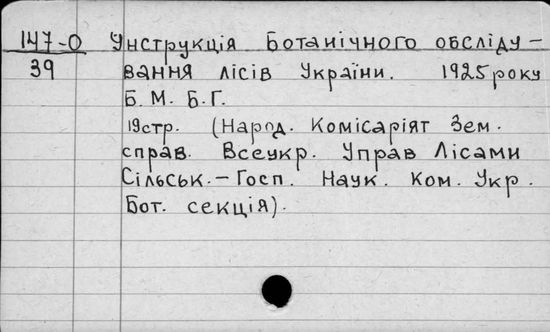 147-О Інструкція Ботанічного обсліду-
39 вання лісів України. 1925 року
Б. М. Б. Г.
19 стр. (Народ. Комісаріят Зем.
справ. Всеукр. Управ Лісами
Сільськ.-Госп. Наук. Ком. Укр.
Бот. секція).